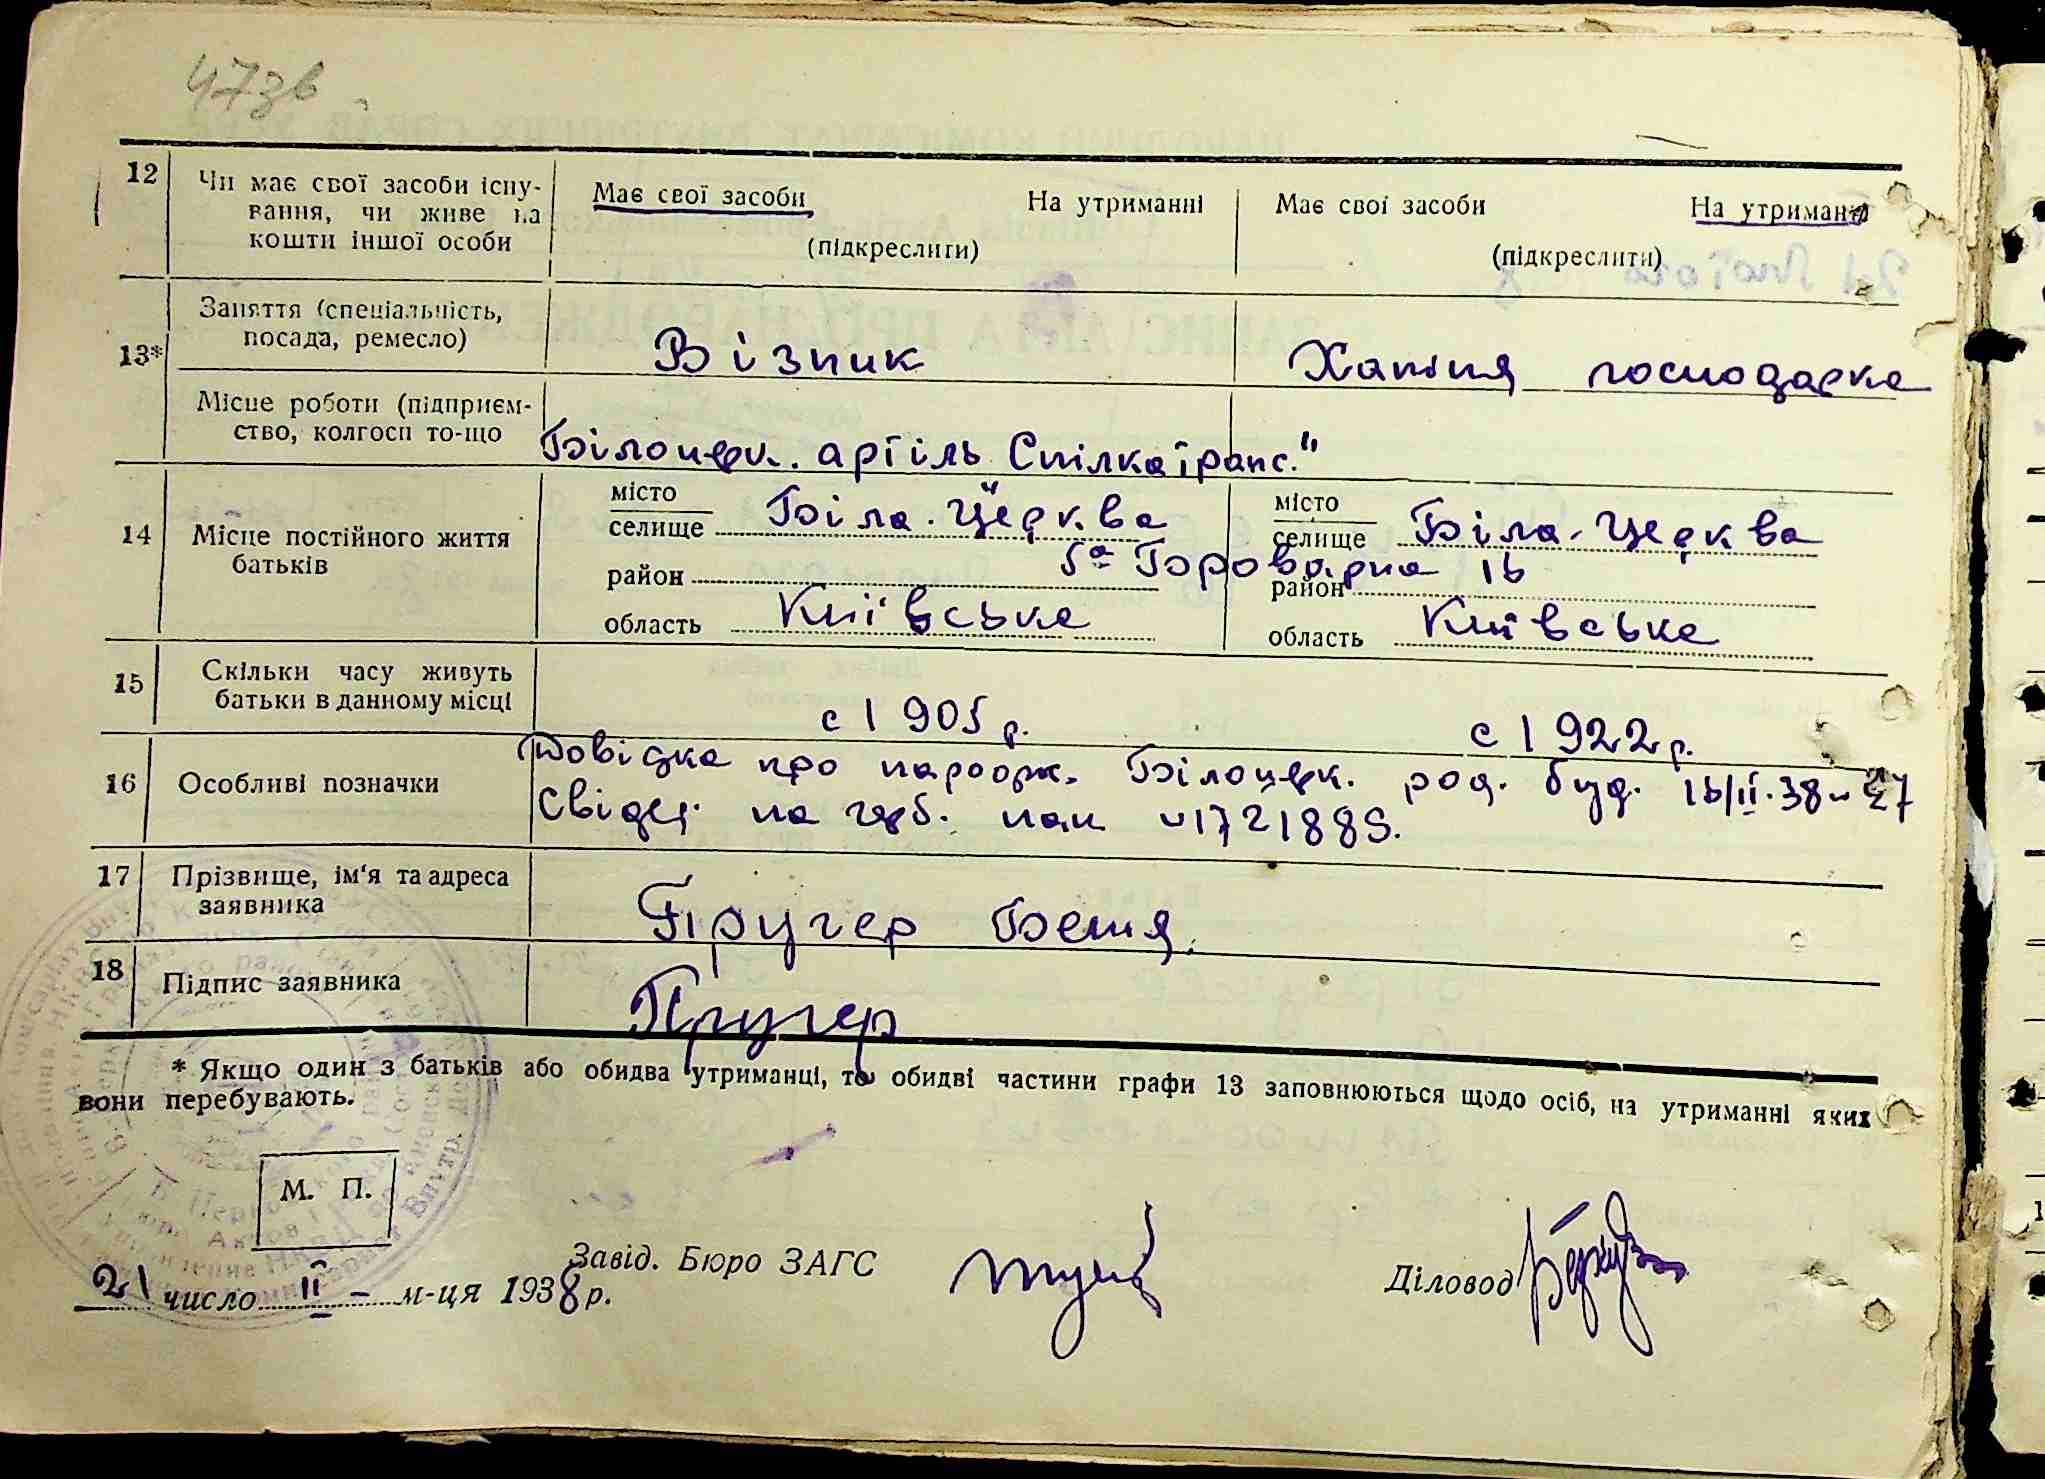 47зв
12 Чи має свої засоби існу- Має свої засоби На утриманні Має свої засоби На утриманні
вання, чи живе на
кошти іншої особи (підкреслити) (підкреслити)
13* Заняття (спеціальність,
посада, ремесло) Візник Хатня господарка
Місце роботи (підприєм-
ство, колгосп то-що Білоцерк. артіль Спілкатранс."
14 Місце постійного життя
батьків
місто
селище Біла-Церква
місто
селище Біла-Церква
район район
5а Броварна 16
область Київська область Київська
15 Скільки часу живуть
батьки в данному місці с 1905 р. с 1922 р.
16 Особливі позначки Довідка про народж. Білоцерк. род. буд. 16/II-38
Свідец на герб. пап 1721889.
17 Прізвище, ім'я та адреса
заявника Пругер
18 Підпис заявника Пругер
* Якщо один з батьків або обидва утриманці, то обидві частини графи 13 заповнюються щодо осіб, на утриманні яких
вони перебувають.
М. П.
Завід. Бюро ЗАГС Діловод
21 число II м-ця 1938 р.